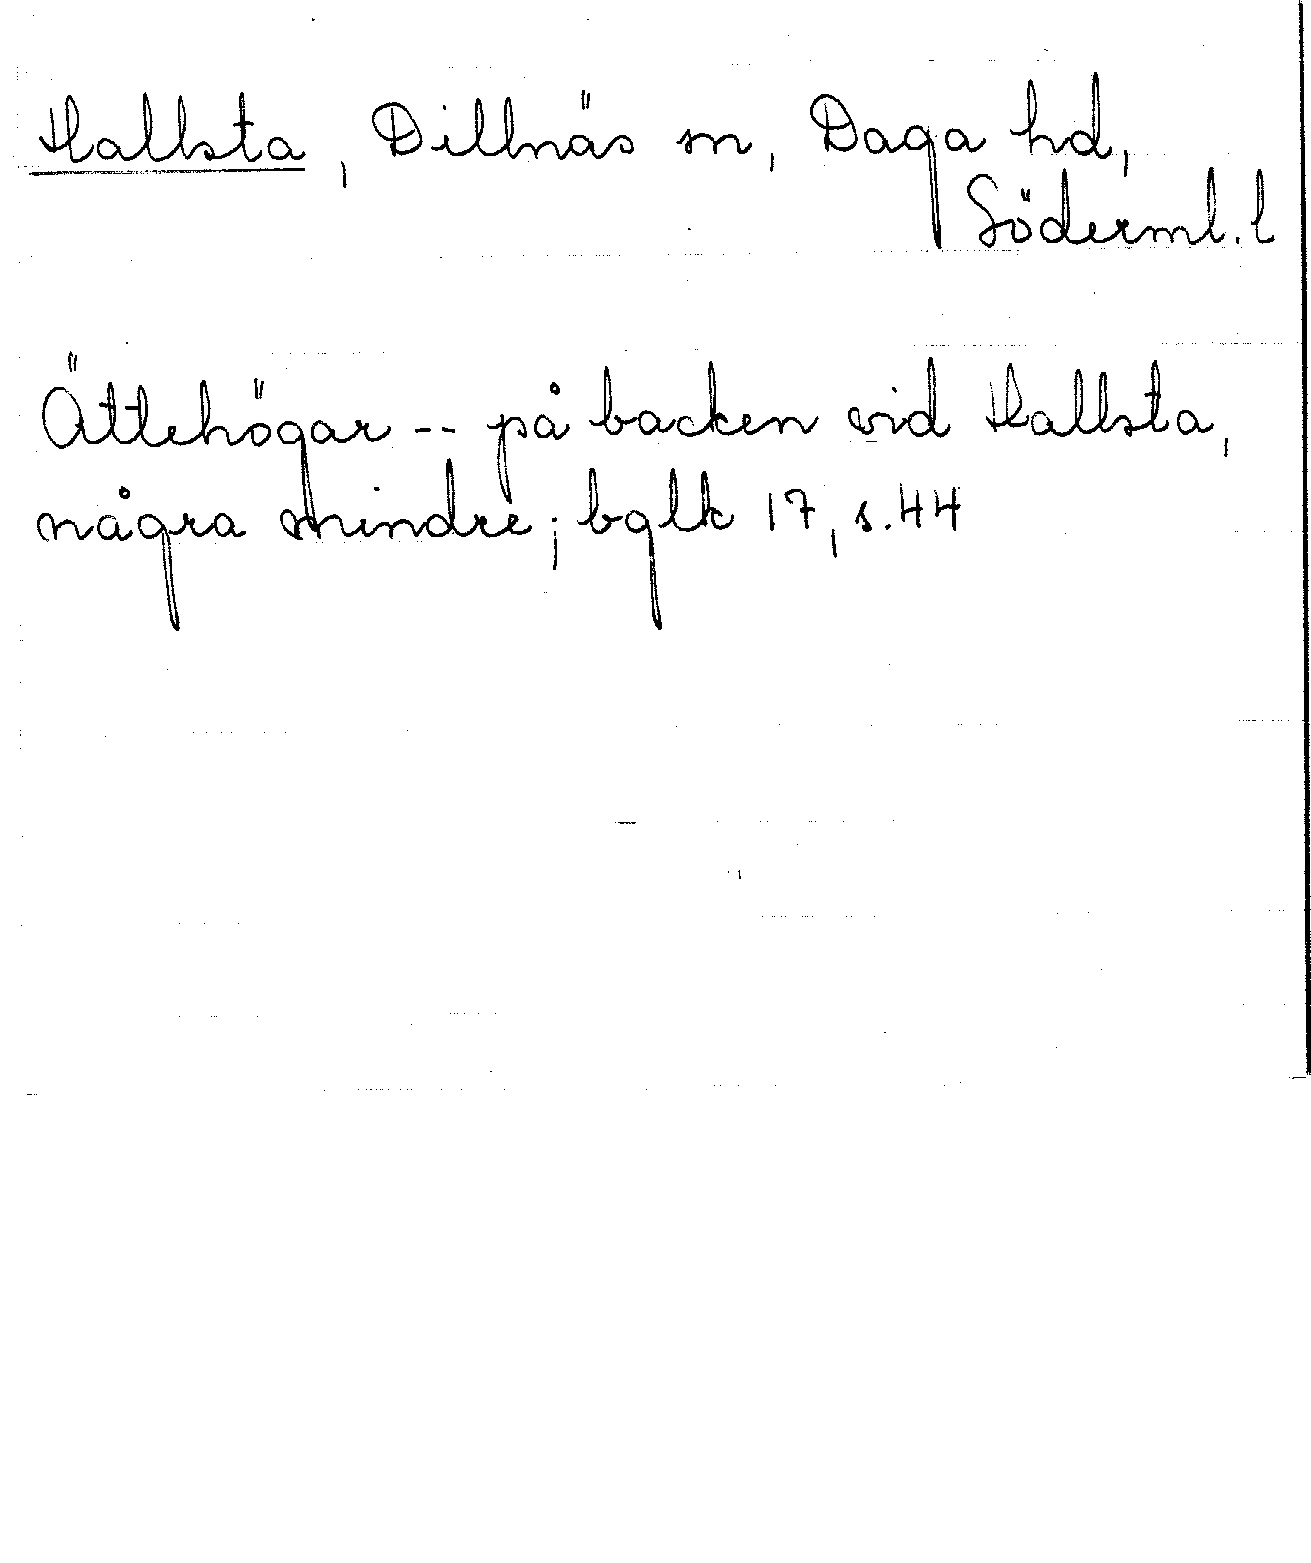 Hallsta, Dillnäs sn, Daga hd,
Söderml. l
Ättehögar -- på backen vid Hallsta,
några mindre; bglk 17, s. 44